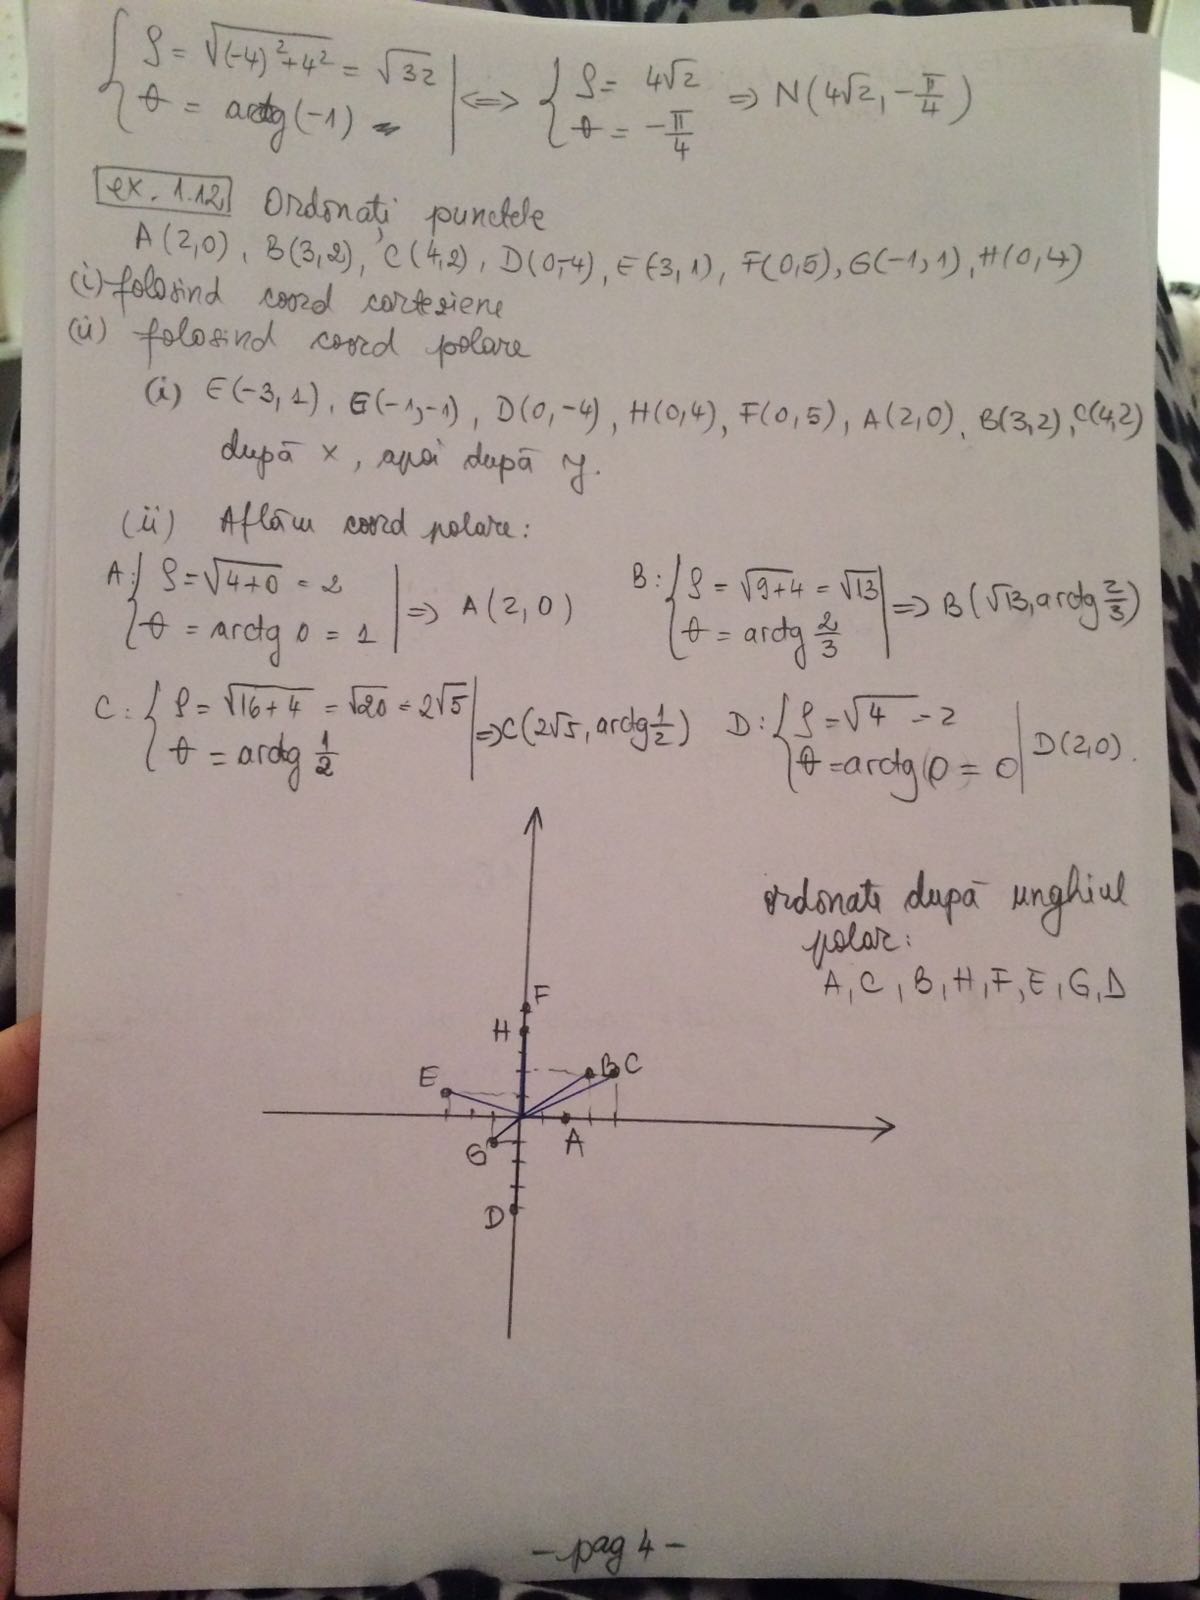 { ρ = √((-4)²+4²) = √32 | <=> { ρ = 4√2 => N(4√2, -π/4)
θ = arctg(-1) θ = -π/4
ex. 1.12 Ordonați punctele
A(2,0), B(3,2), C(4,2), D(0,-4), E(-3,1), F(0,5), G(-1,1), H(0,4)
(i) folosind coord carteziene
(ii) folosind coord polare
(i) E(-3,1), G(-1,-1), D(0,-4), H(0,4), F(0,5), A(2,0), B(3,2), C(4,2)
după x, apoi după y.
(ii) Aflăm coord polare:
A: { ρ = √(4+0) = 2 | => A(2,0)
θ = arctg 0 = 1
B: { ρ = √(9+4) = √13 | => B(√13, arctg 2/3)
θ = arctg 2/3
C: { ρ = √(16+4) = √20 = 2√5 | => C(2√5, arctg 1/2)
θ = arctg 1/2
D: { ρ = √4 = 2 | D(2,0).
θ = arctg 0 = 0
ordonate după unghiul
polar:
A, C, B, H, F, E, G, D
F
H
B C
E
A
G
D
- pag 4 -